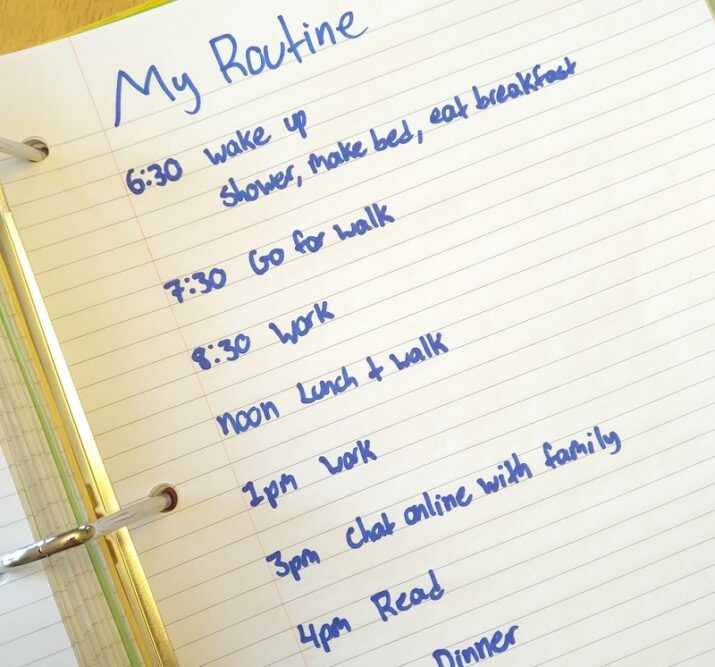 My Routine
6:30 wake up
shower, make bed, eat breakfast
7:30 Go for walk
8:30 work
noon Lunch + walk
1pm work
3pm chat online with family
4pm Read
Dinner